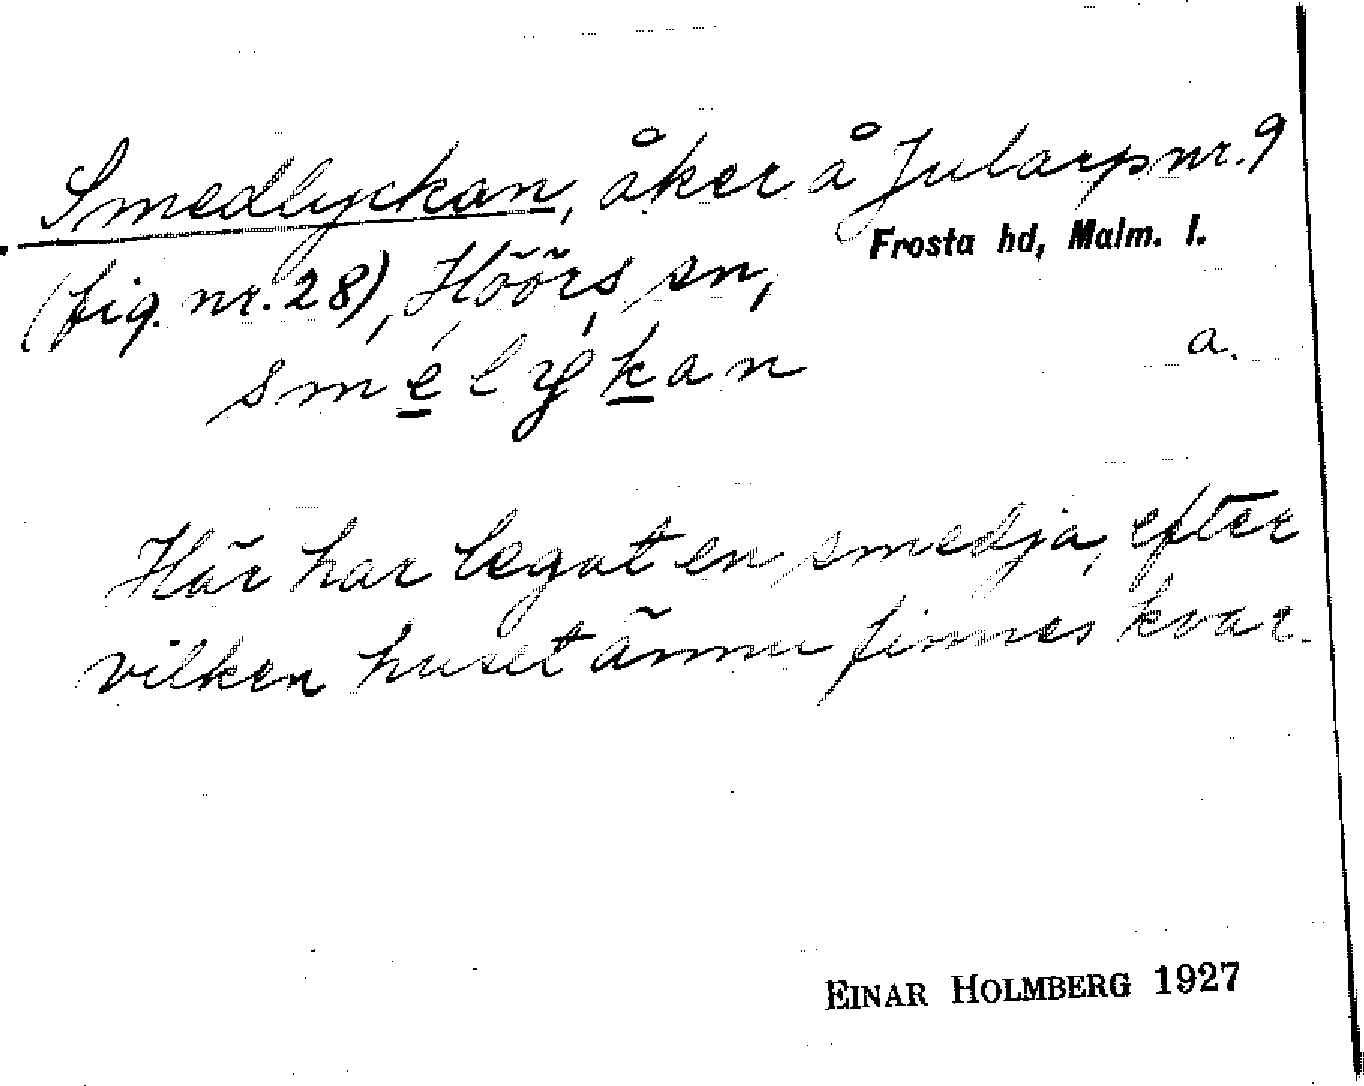 Smedlyckan, åker å Jularp nr. 9
Frosta hd, Malm. l.
(fig. nr. 28), Höörs sn,
a.
smelykan
Här har legat en smedja, efter
vilken huset ännu finnes kvar.
EINAR HOLMBERG 1927